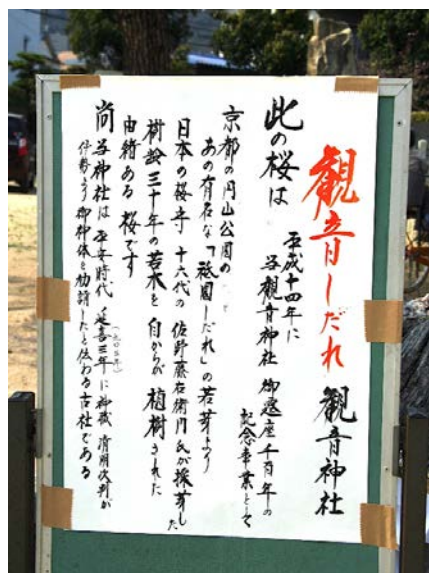 観音しだれ 観音神社
此の桜は 平成十四年に
当観音神社 御遷座千百年の
記念事業として
京都の円山公園の
あの有名な「祇園しだれ」の若芽より
日本の桜守 十六代の 佐野藤右衛門氏が採芽した
樹齢三十年の若木を 自からが 植樹された
由緒ある 桜です
尚 当神社は 平安時代 延喜三年に神職
(九〇三年)
伊勢より御神体を勧請したと伝わる古社である